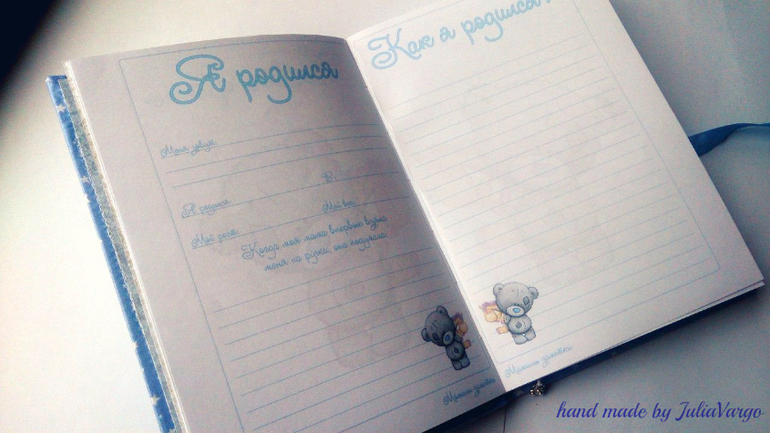 Я родился
Меня зовут:
Я родился:
В:
Мой вес:
Мой рост:
Когда моя мама впервые взяла
меня на ручки, она подумала:
Мамины заметки
Как я родился?
Мамины заметки
hand made by JuliaVargo